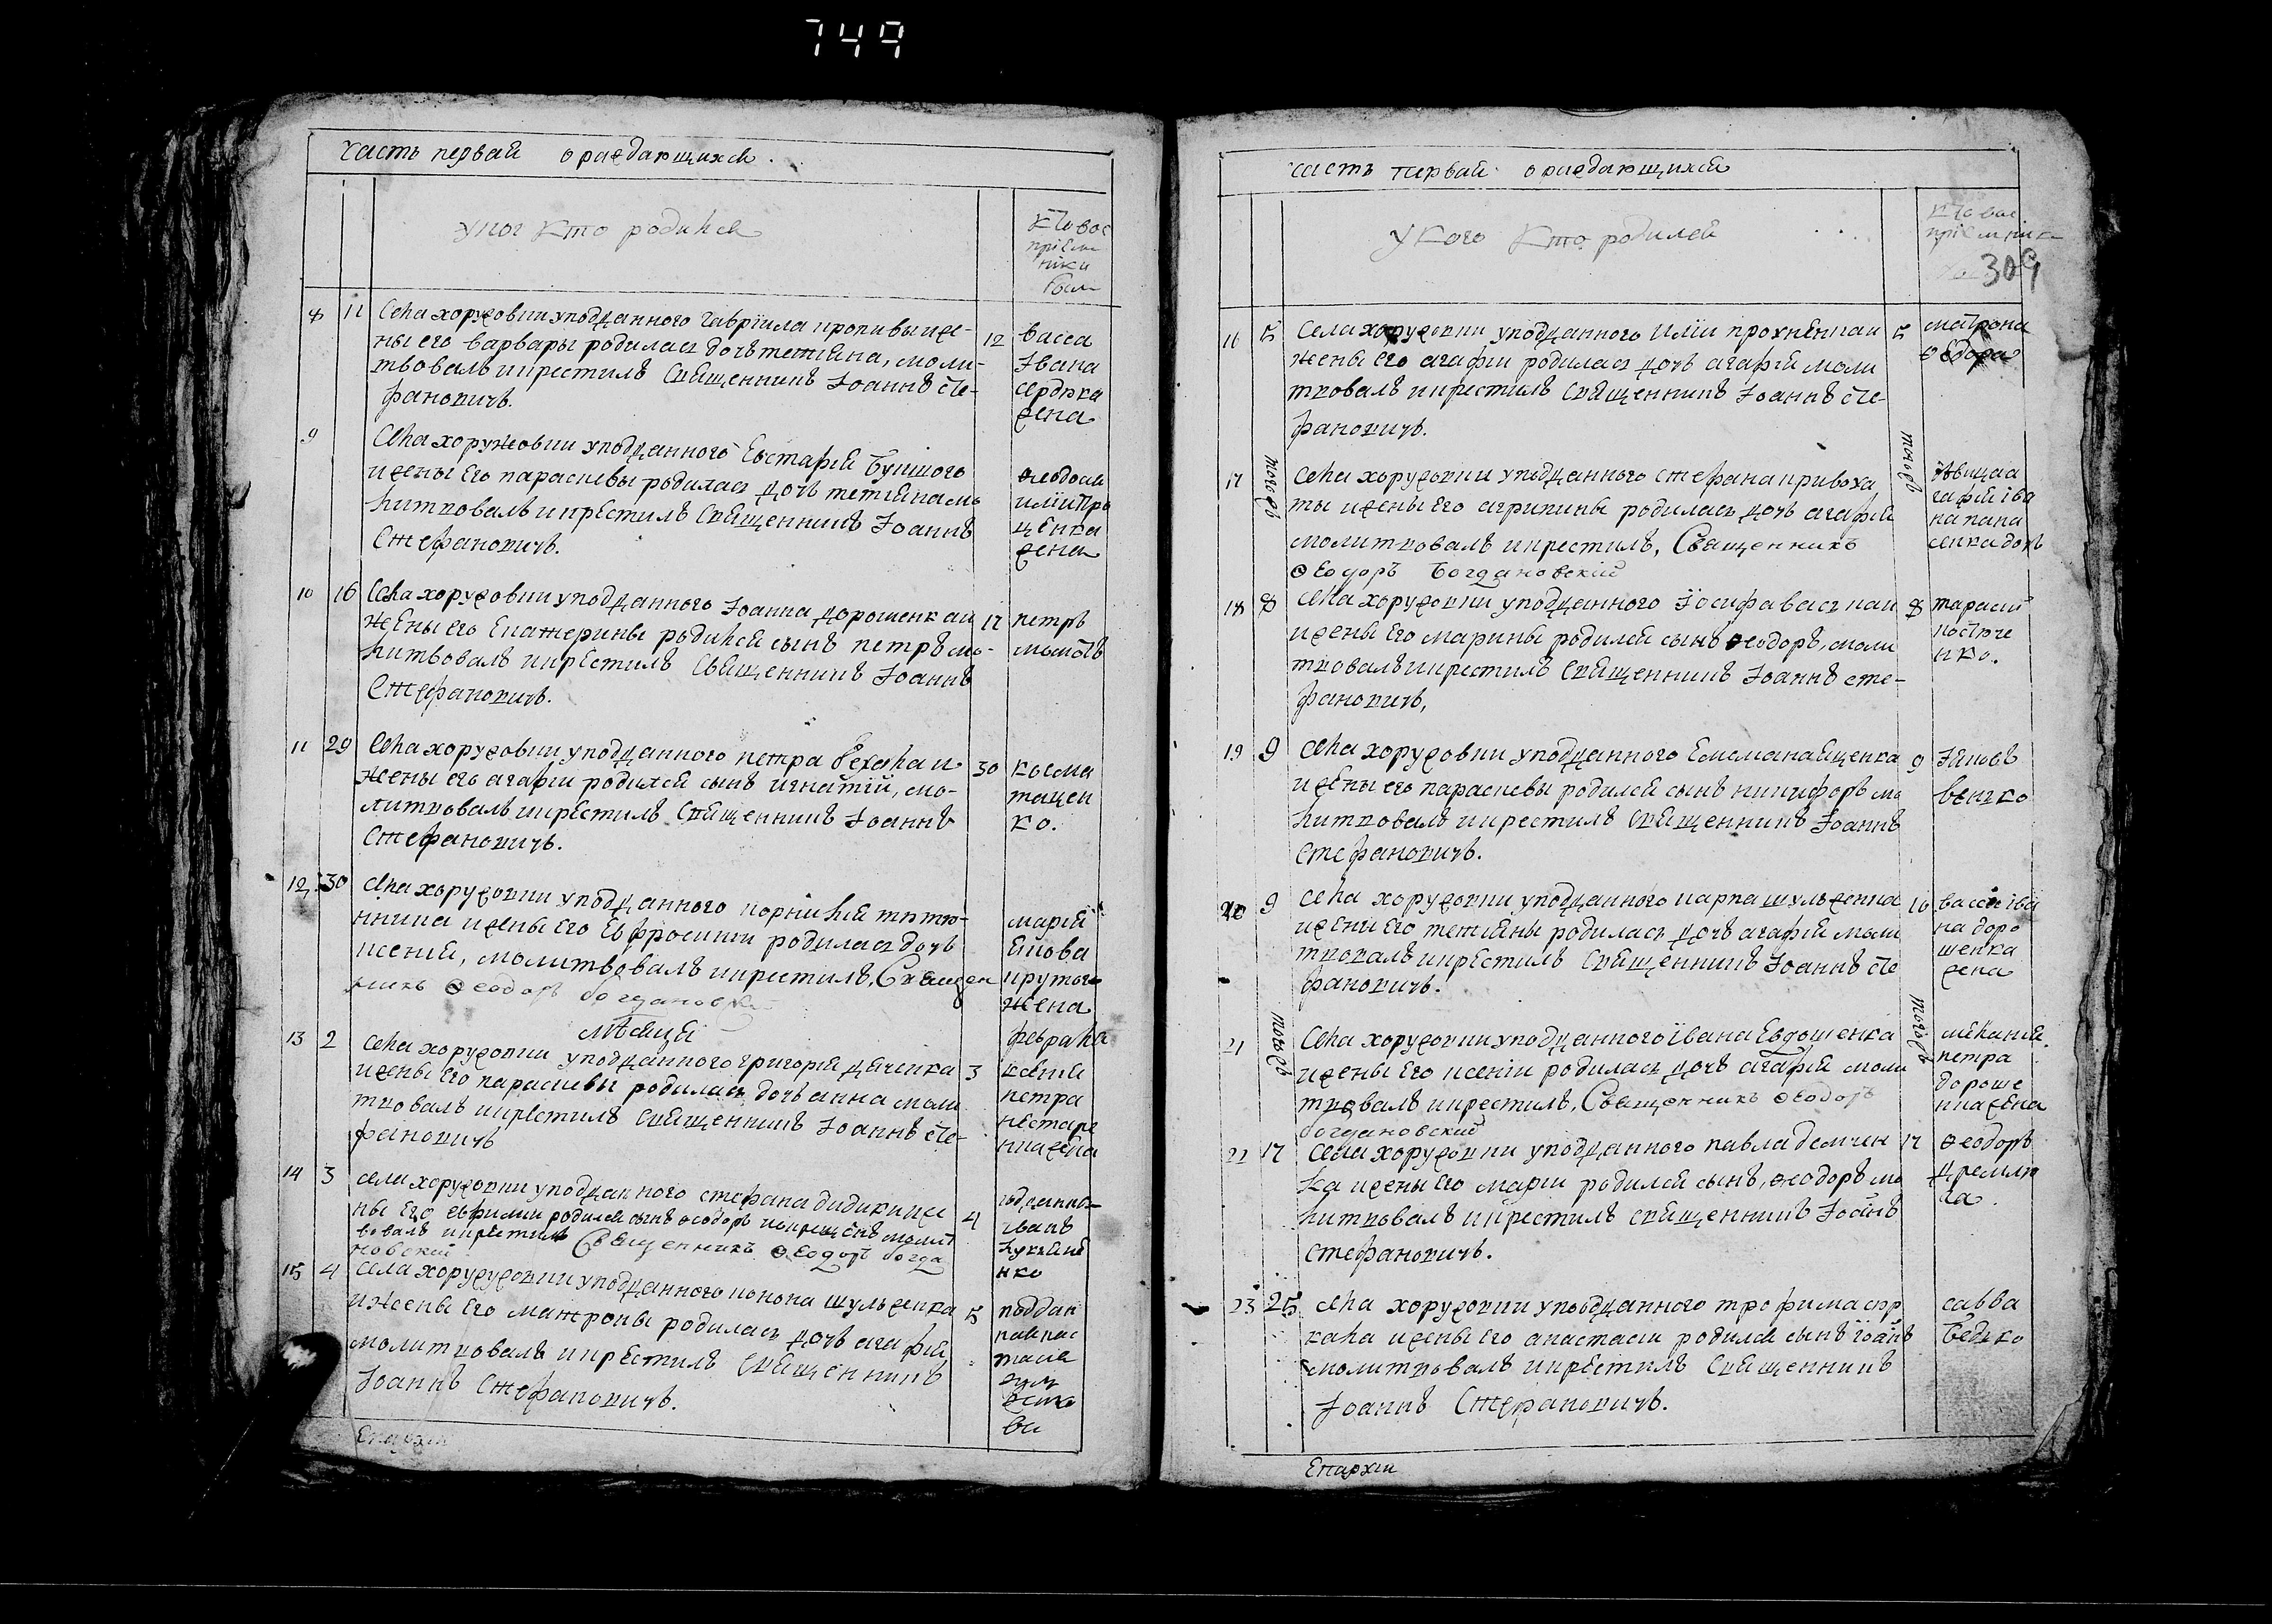 749
Часть первая о раждающихся.
у ког кто родился
Кто вос
пріем
ники
были
8 11 Села хоружовки уподданного гавріила пропивы и же-
ны его варвары родилась дочь татіяна, моли-
твовалъ и крестилъ священникъ Іоаннъ сте-
фановичъ.
12 васса
Ивана
сердюка
жена
9 Села хоружовки уподданного Евстафія
и жены его параскевы родилась дочь татіяна мо
литвовалъ и крестилъ священникъ Іоаннъ
Стефановичъ.
феодосія
иліи про
ценка
жена
10 16 Села хоружовки уподданного Іоанна дорошенка и
жены его Екатерины родился сынъ петръ мо-
литвовалъ и крестилъ священникъ Іоаннъ
Стефановичъ.
17 петръ
11 29 Села хоружовки уподданного петра и
жены его агафіи родился сынъ игнатій, мо-
литвовалъ и крестилъ священникъ Іоаннъ
стефановичъ.
30 косма
тацен
ко.
12 30 Села хоружовки уподданного корнилія
и жены его Евфросиніи родилась дочь
ксенія, молитвовалъ и крестилъ, Священ
никъ Феодоръ богдановскій
марія
крутого
жена
мѣсяца
февраля
13 2 Села хоружовки уподданного григорія дяченка
и жены его параскевы родилась дочь анна моли
твовалъ и крестилъ священникъ Іоаннъ сте-
фановичъ
3 ксенія
петра
жена
14 3 села хоружовки уподданного стефана и же
ны его евфиміи родился сынъ феодоръ
вовалъ и крестилъ Священникъ Феодоръ богда
новскій
4
иванъ
нко
15 4 села хоружовки уподданного конона шульженка
и жены его матроны родилась дочь агафія
молитвовалъ и крестилъ священникъ
Іоаннъ Стефановичъ.
5 поддан
Епархіи
часть первая о раждающихся
У кого Кто родился
Кто вос
пріемника
309
16 5 Села хоружовки уподданного иліи прохненка и
жены его агафіи родилась дочь агафія моли
твовалъ и крестилъ священникъ Іоаннъ сте-
фановичъ.
5 матрона
федора
17 тогождъ села хоружовки уподданного стефана кривоха
ты и жены его агрипины родилась дочь агафія
молитвовалъ и крестилъ, Священникъ
Феодоръ Богдановскій
тогождъ дѣвица а
гафія ива
на пана
сенка дочь
18 8 села хоружовки уподданного Іосифа васька и
и жены его марины родился сынъ феодоръ, моли
твовалъ и крестилъ священникъ Іоаннъ сте-
фановичъ,
8 тарасій
костюче
нко.
19 9 села хоружовки уподданного Емельана ященка
и жены его параскевы родился сынъ никифоръ мо
литвовалъ и крестилъ священникъ Іоаннъ
стефановичъ.
9 Іяковъ
20 9 села хоружовки уподданного карпа шульженка
и жены его татіяны родилась дочь агафія моли
твовалъ и крестилъ священникъ Іоаннъ сте
фановичъ.
10 васса ива
на доро
шенка
жена
21 тогождъ села хоружовки уподданного івана Евдошенка
и жены его ксеніи родилась дочь агафія моли
твовалъ и крестилъ, Священникъ Феодоръ
богдановскій
тогождъ меланія
петра
дороше
нка жена
22 17 села хоружовки уподданного павла демчен
ка и жены его маріи родился сынъ, феодоръ мо
литвовалъ и крестилъ священникъ Іоаннъ
стефановичъ.
17 феодоръ
дремлю
га.
23 25 села хоружовки уподданного трофима
и жены его анастасіи родился сынъ іоаннъ
молитвовалъ и крестилъ священникъ
Іоаннъ Стефановичъ.
савва
бедько
Епархіи